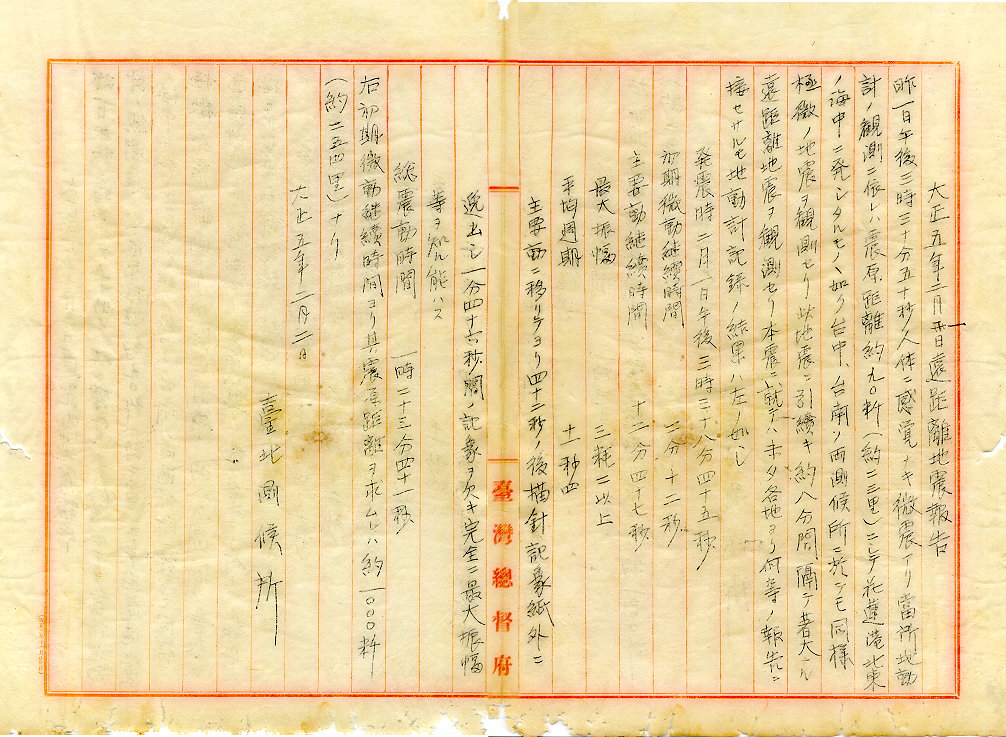 大正五年二月一日遠距離地震報告
昨一日午後三時三十分五十秒人体ニ感覚ナキ微震アリ當所地動
計ノ観測ニ依レハ震原距離約九〇粁（約二三里）ニシテ花蓮港北東
ノ海中ニ発シタルモノヽ如ク台中、台南ノ両測候所ニ於テモ同様
極微ノ地震ヲ観測セリ此地震ニ引續キ約八分間隔テ著大ナル
遠距離地震ヲ観測セリ本震ニ就テハ未タ各地ヨリ何等ノ報告ニ
接セサルモ地動計記録ノ結果ハ左ノ如シ
発震時 二月一日午後三時三十八分四十五秒
初期微動継續時間 二分十二秒
主要動継續時間 十二分四十七秒
最大振幅 三粍二以上
平均週期 十一秒四
主要動ニ移リテヨリ四十二秒ノ後描針記象紙外ニ
逸出シ一分四十六秒間ノ記象ヲ欠キ完全ニ最大振幅
等ヲ知ル能ハス
総震動時間 一時二十三分四十一秒
右初期微動継續時間ヨリ其震原距離ヲ求ムレハ約一〇〇〇粁
（約二五四里）ナリ
大正五年二月二日
臺北測候所
臺灣總督府